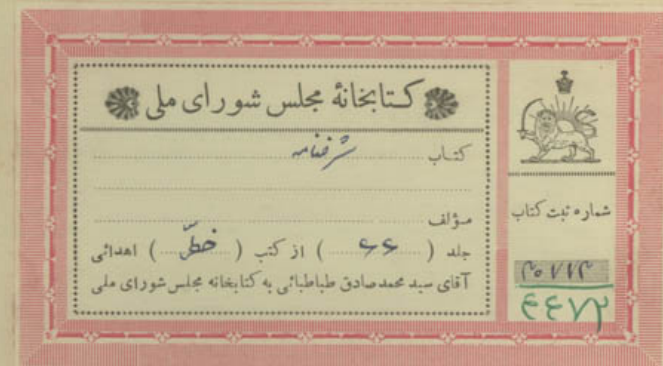 کتابخانهٔ مجلس شورای ملی
کتاب شرفنامه
مؤلف
جلد ( ۶۶ ) از کتب ( خطی ) اهدائی
آقای سید محمدصادق طباطبائی به کتابخانه مجلس شورای ملی
شماره ثبت کتاب